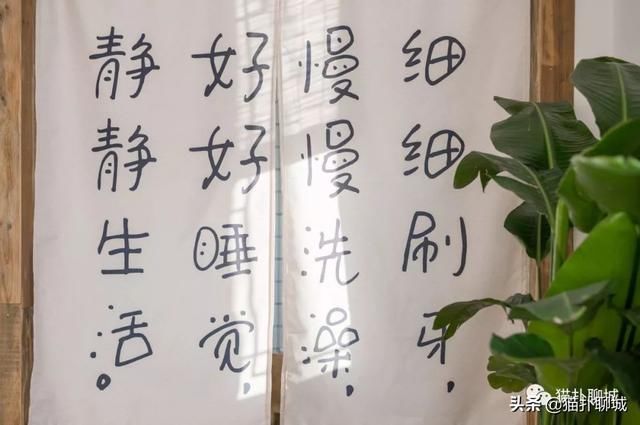 细细刷牙，
慢慢洗澡，
好好睡觉，
静静生活。
猫扑聊城
头条 @猫扑聊城